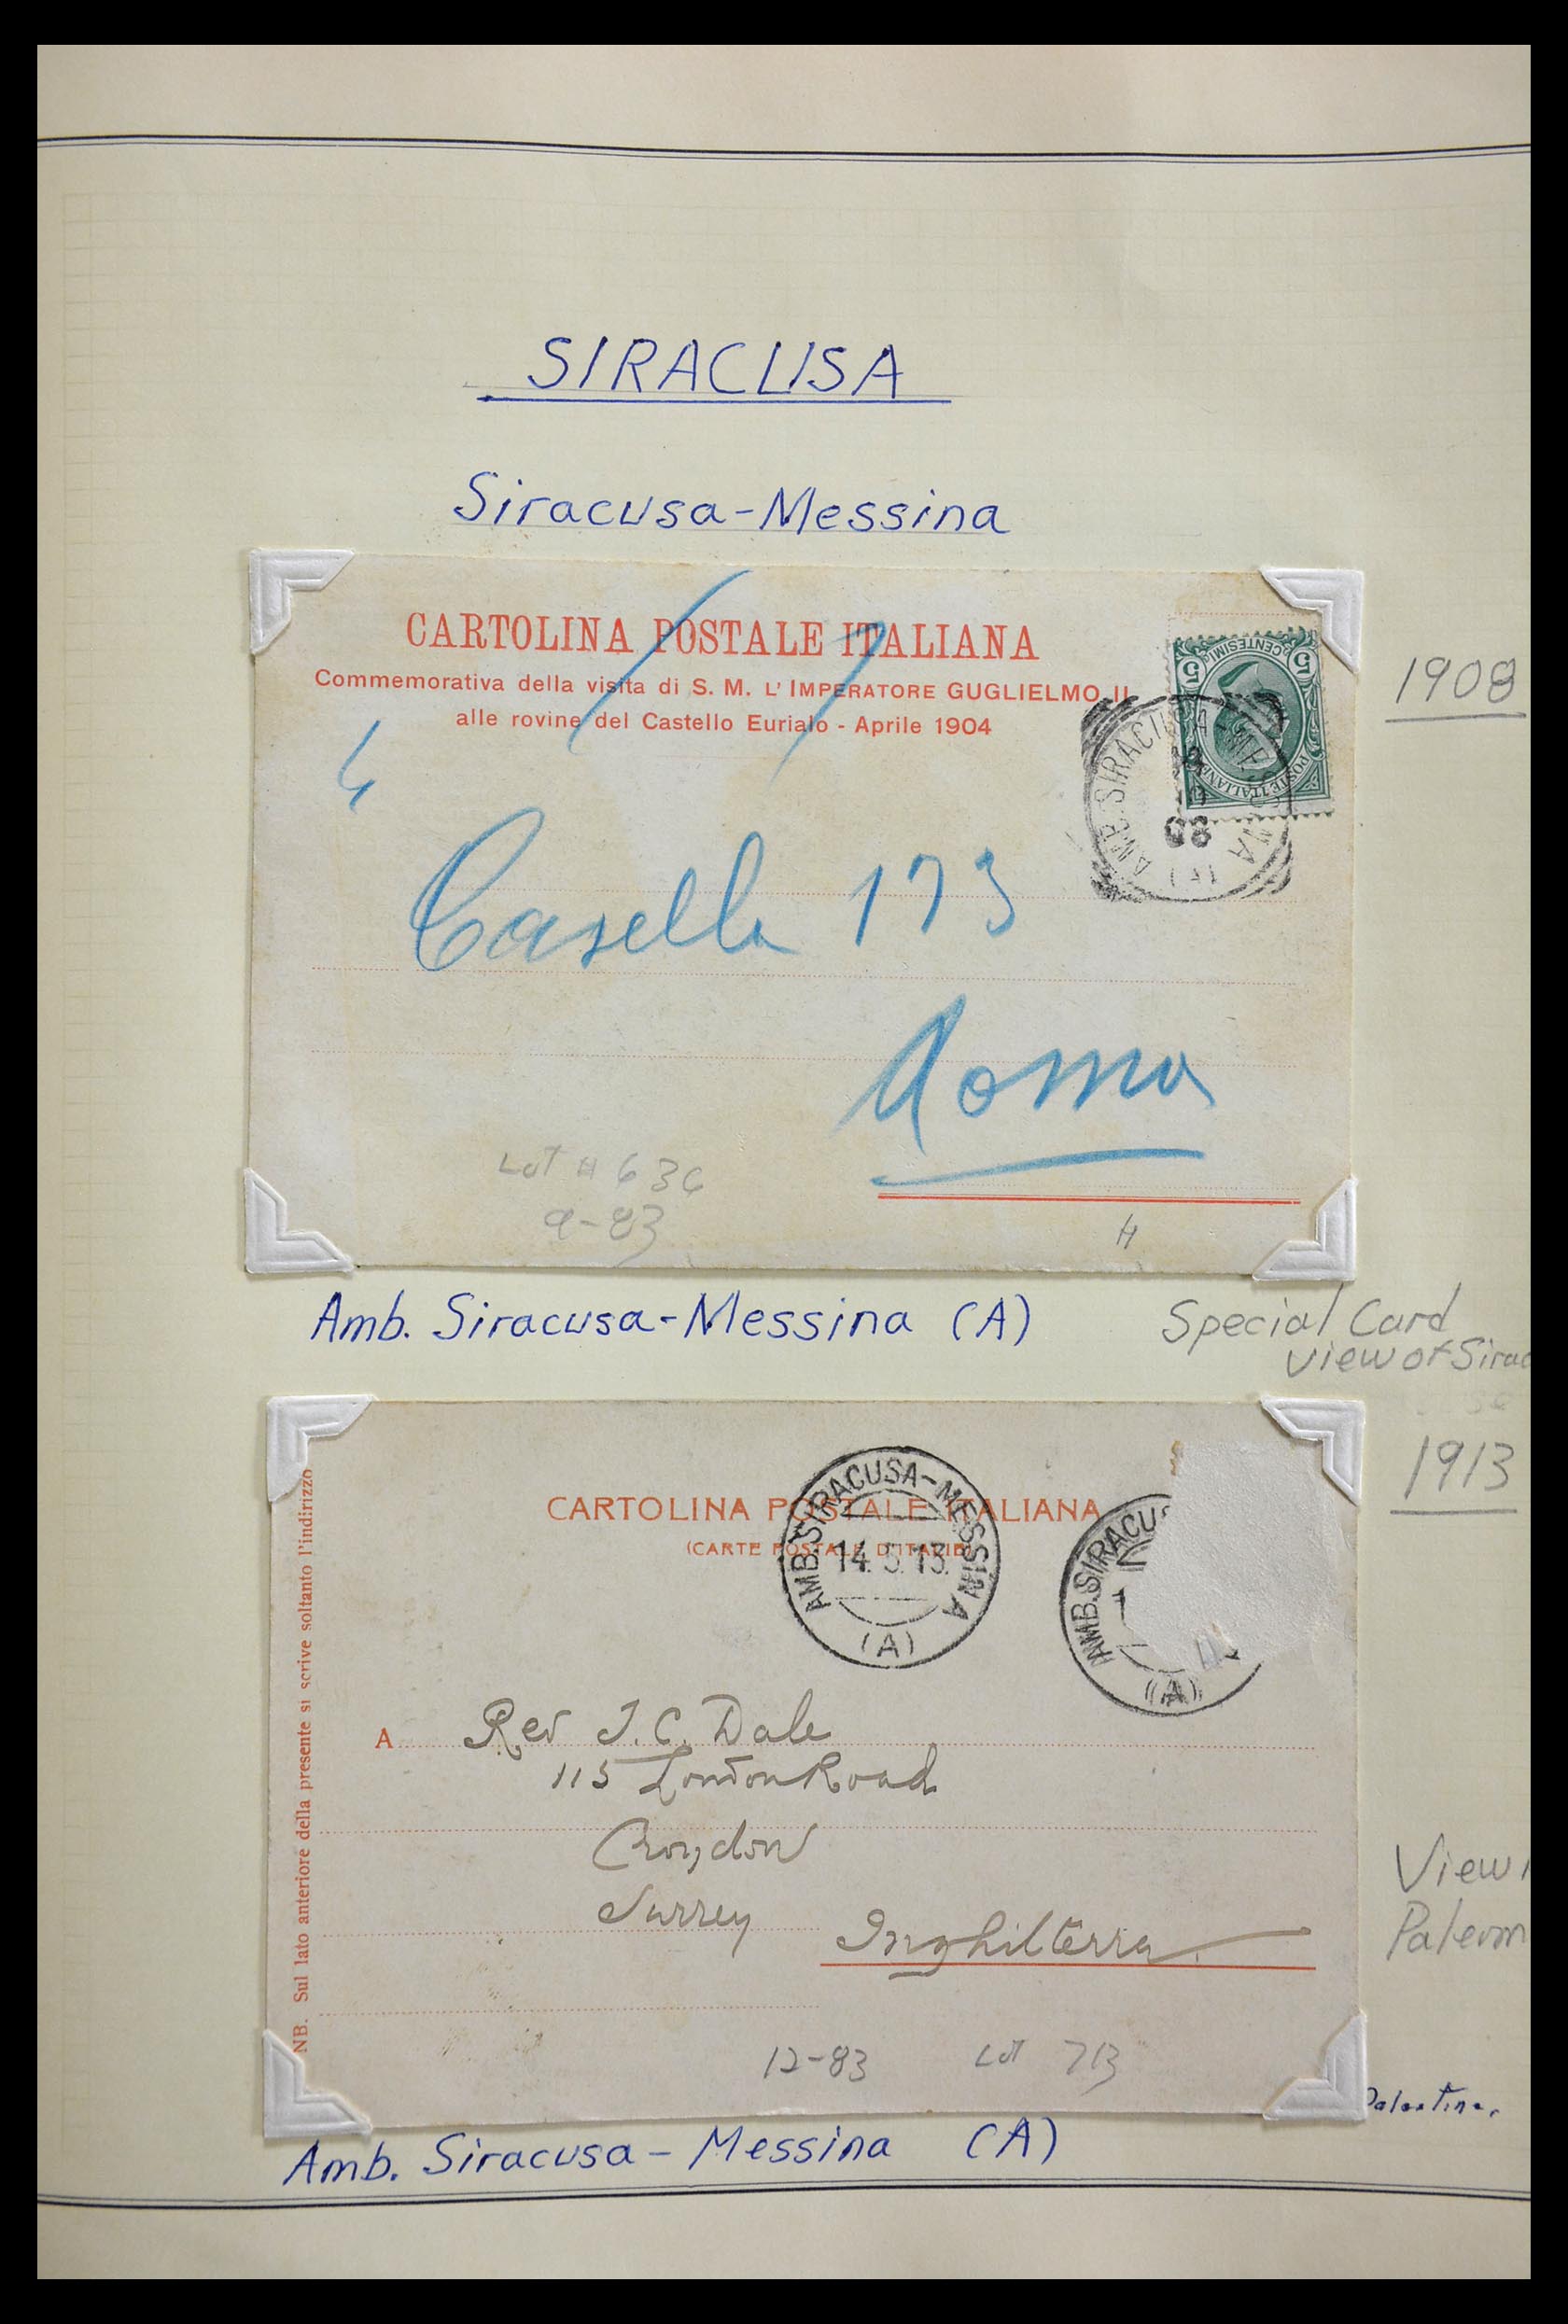 SIRACUSA
Siracusa-Messina
CARTOLINA POSTALE ITALIANA
Commemorativa della visita di S. M. L'IMPERATORE GUGLIELMO II
alle rovine del Castello Eurialo - Aprile 1904
5 CENTESIMI 5
POSTE ITALIANE
AMB. SIRACUSA-MESSINA
08
(A)
1908
Casella 173
Roma
Lot # 636
9-83
H
Amb. Siracusa-Messina (A)
Special Card
view of Sirac
1913
CARTOLINA POSTALE ITALIANA
(CARTE POSTALE D'ITALIE)
AMB. SIRACUSA-MESSINA
14. 5. 13.
(A)
AMB. SIRACUS
1
(A)
NB. Sul lato anteriore della presente si scrive soltanto l'indirizzo
A Rev J. C. Dale
115 London Road
Croydon
Surrey
Inghilterra
View
Palerm
12-83 Lot 713
Palestine,
Amb. Siracusa-Messina (A)